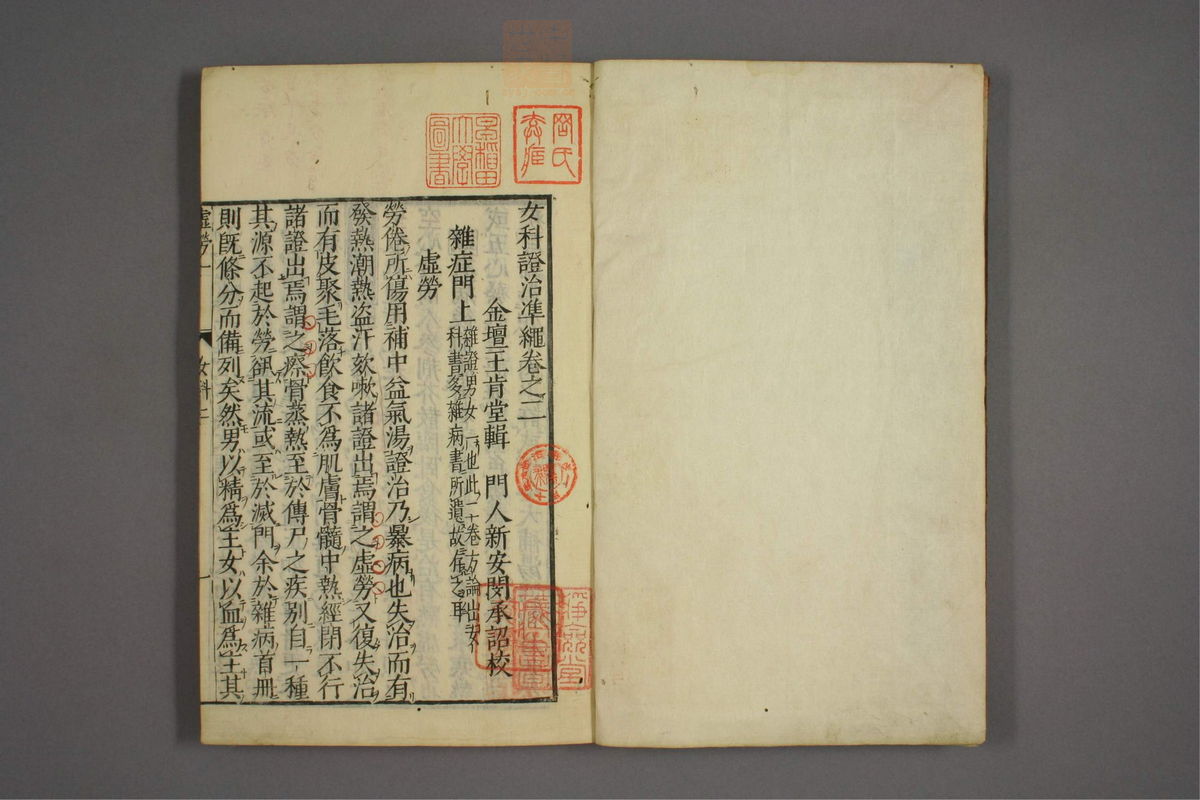 女科證治準繩卷之二
金壇王肯堂輯　門人新安閔承詔校
雜症門上
雜證男女一也此二十卷方論出女
科書多雜病書所遺故存之耳
虛勞
勞倦所傷用補中益氣湯證治乃暴病也失治而有
發熱潮熱盜汗欬嗽諸證出焉謂之虛勞又復失治
而有皮聚毛落飲食不爲肌膚骨髓中熱經閉不行
諸證出焉謂之瘵骨蒸熱至於傳尸之疾别自一種
其源不起於勞𠙖其流或至於滅門余於雜病首冊
則旣條分而備列矣然男以精爲主女以血爲主其
虛勞一
女科二
早稻田
大學
圖書